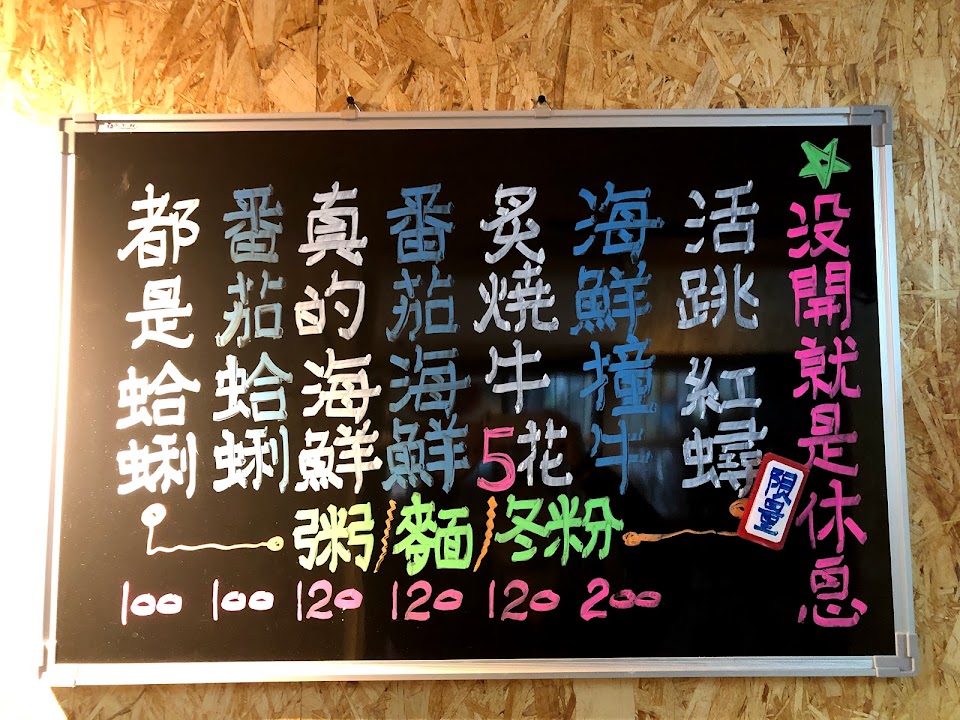 没開就是休息
活跳紅蟳
限量
海鮮撞牛
炙燒牛5花
番茄海鮮
真的海鮮
番茄蛤蜊
都是蛤蜊
粥/麵/冬粉
100 100 120 120 120 200